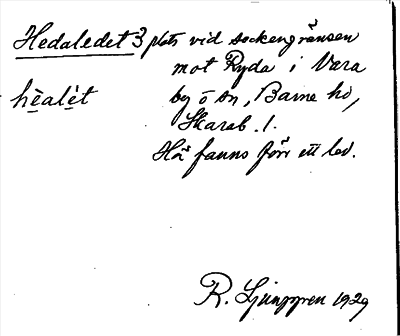 Hedaledet 3 plats vid sockengränsen
mot Ryda i Vara
hèalèt by o sn, Barne hd,
Skarab. l.
Här fanns förr ett led.
R. Ljunggren 1929